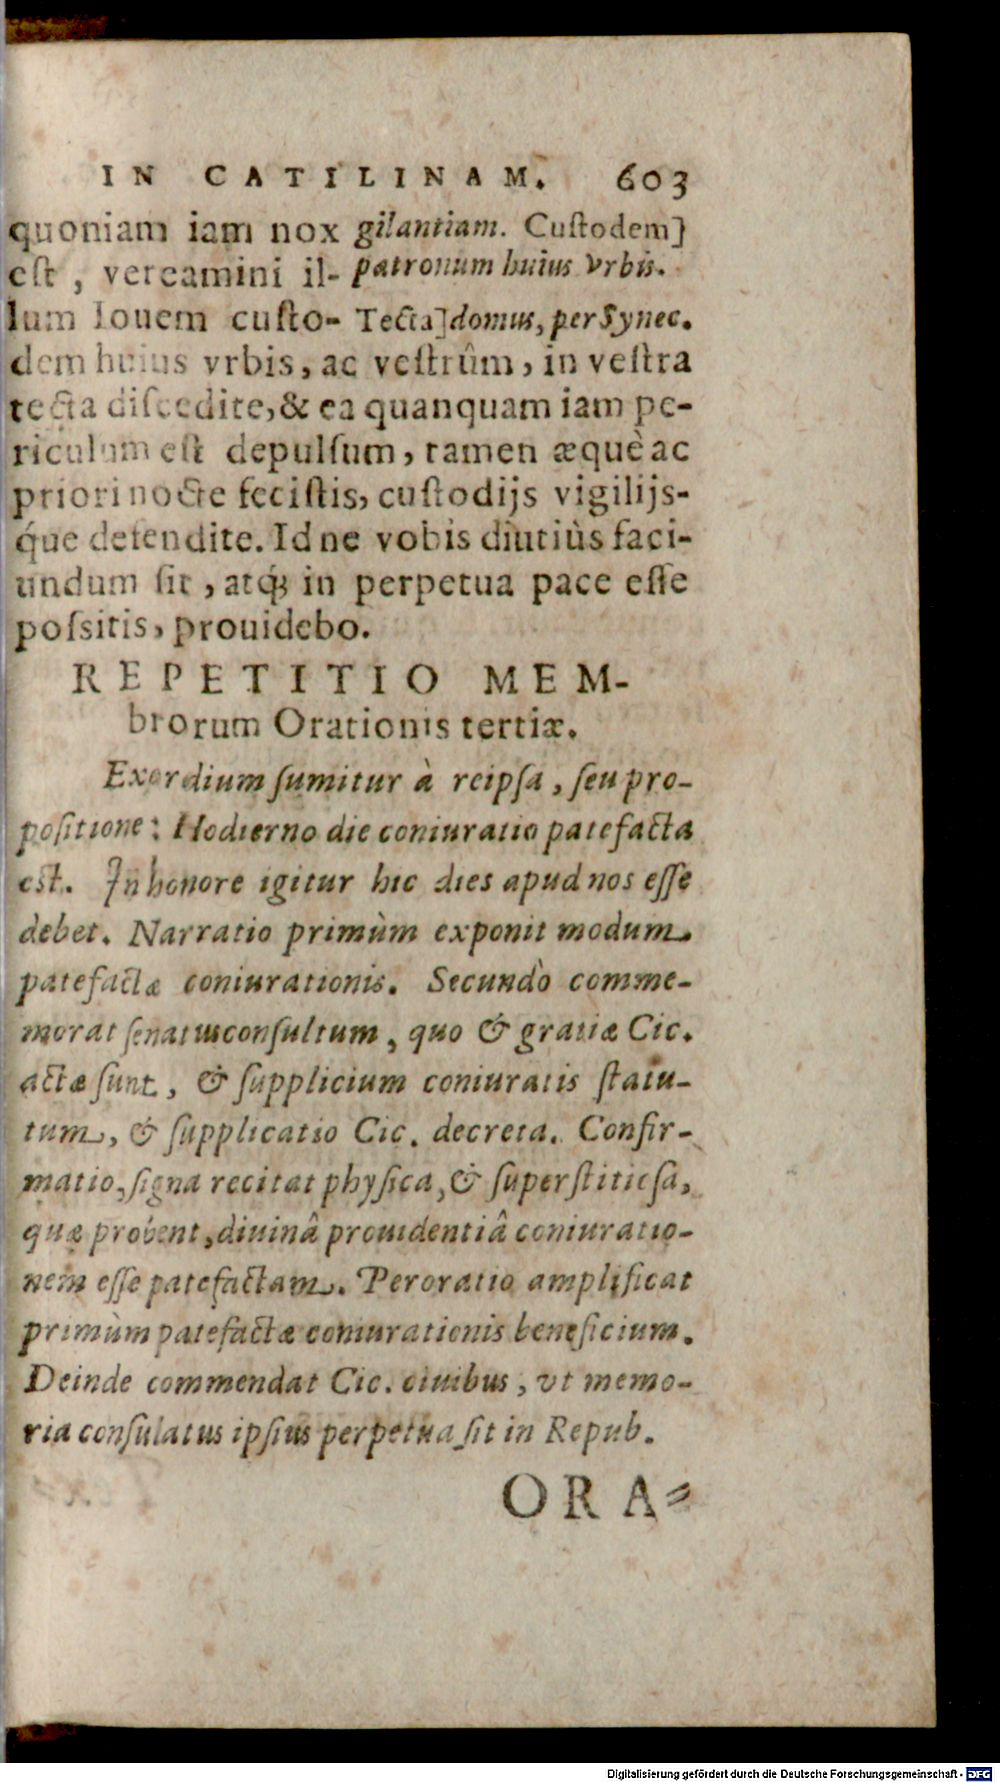 IN CATILINAM. 603
quoniam iam nox
est, vereamini il-
lum Iouem custo-
gilantiam. Custodem]
patronum huius Vrbis.
Tecta] domus, per Synec.
dem huius vrbis, ac vestrûm, in vestra
tecta discedite, & ea quanquam iam pe-
riculum est depulsum, tamen æquè ac
priori nocte fecistis, custodijs vigilijs-
q́ue defendite. Id ne vobis diutiùs faci-
undum sit, atq; in perpetua pace esse
possitis, prouidebo.
REPETITIO MEM-
brorum Orationis tertiæ.
Exordium sumitur à reipsa, seu pro-
positione: Hodierno die coniuratio patefacta
est. In honore igitur hic dies apud nos esse
debet. Narratio primùm exponit modum
patefactæ coniurationis. Secundò comme-
morat senatusconsultum, quo & gratiæ Cic.
actæ sunt, & supplicium coniuratis statu-
tum, & supplicatio Cic. decreta. Confir-
matio, signa recitat physica, & superstitiosa,
quæ probent, diuinâ prouidentiâ coniuratio-
nem esse patefactam. Peroratio amplificat
primùm patefactæ coniurationis beneficium.
Deinde commendat Cic. ciuibus, vt memo-
ria consulatus ipsius perpetua sit in Repub.
ORA-
Digitalisierung gefördert durch die Deutsche Forschungsgemeinschaft - DFG